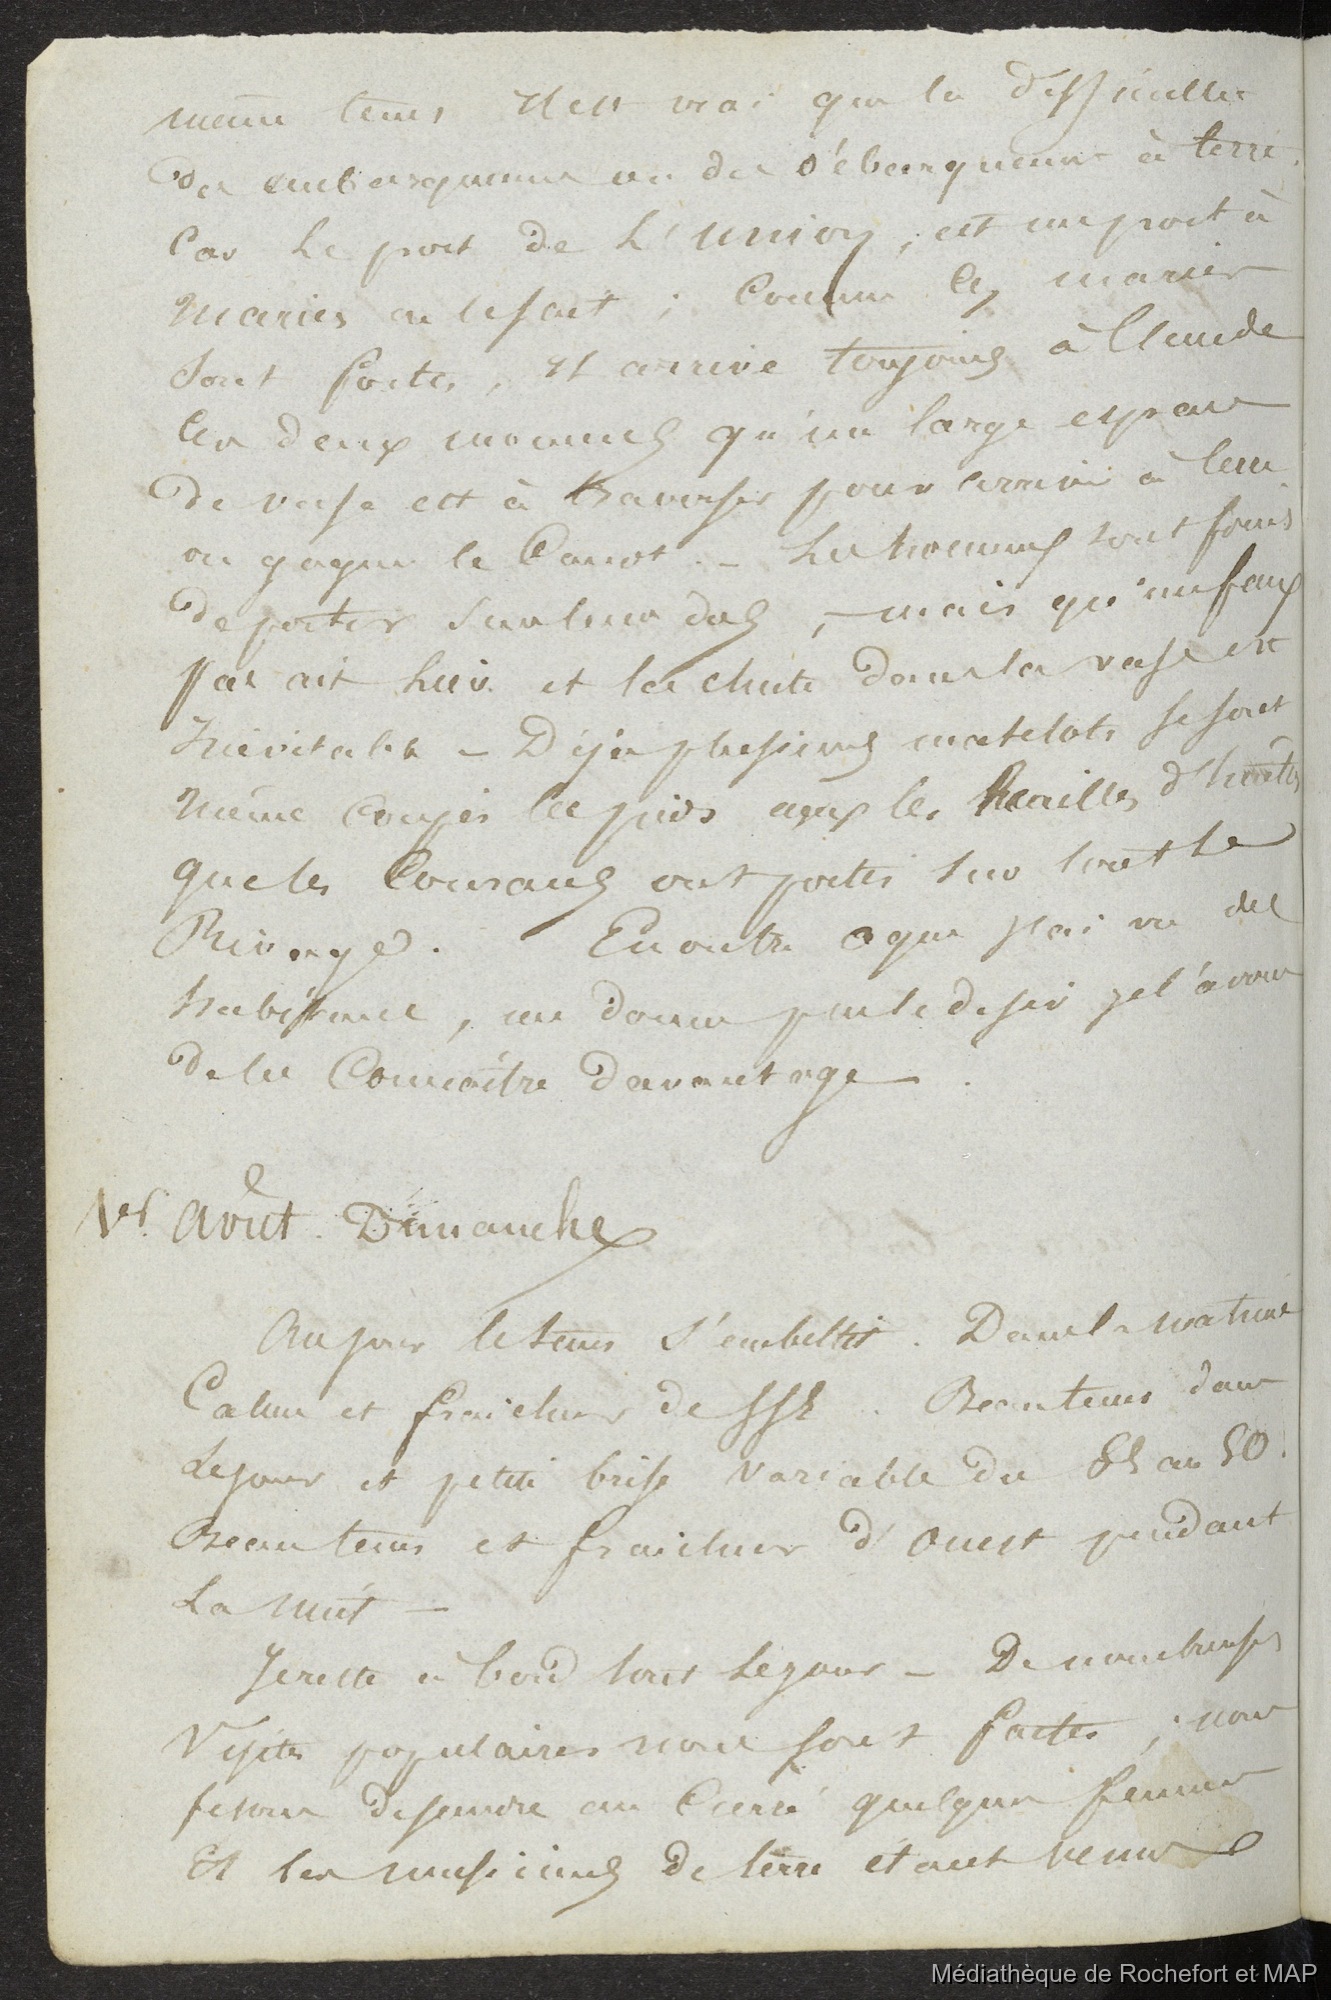 même tems Il est vrai que la difficulté
des embarquemens ou des débarquemens à terre.
Car le port de L'Union, est un port à
marées en le fait ; Comme les marées
sont fortes, Il arrive toujours à l'une de
ces deux momens qu'un large espace
de vase est à traverser pour arriver à terre
ou gagner le Canot. – Les hommes sont forcés
de porter sur leur dos, – mais qu'un faux
pas ait lieu et la chute dans la vase est
Inévitable – Déja plusieurs matelots se sont
même coupés les pieds avec les écailles d'huitres
que les Courans ont portés sur tout le
Rivage. En outre ce que j'ai vu des
habitans, me donne peu le desir je l'avoue
de les Connaître davantage.
1er Août. Dimanche
Au jour le tems s'embellit. Dans la matinée
Calme et fraicheur de SSE. Beau tems dans
Le jour et petite brise variable du SE au SO.
Beau tems et fraicheur d'Ouest pendant
La nuit –
Je reste à bord tout le jour – De nombreuses
Visites populaires nous sont faites ; nous
fesons descendre au Carré quelques femmes
Et les musiciens de terre étant venus
Médiathèque de Rochefort et MAP